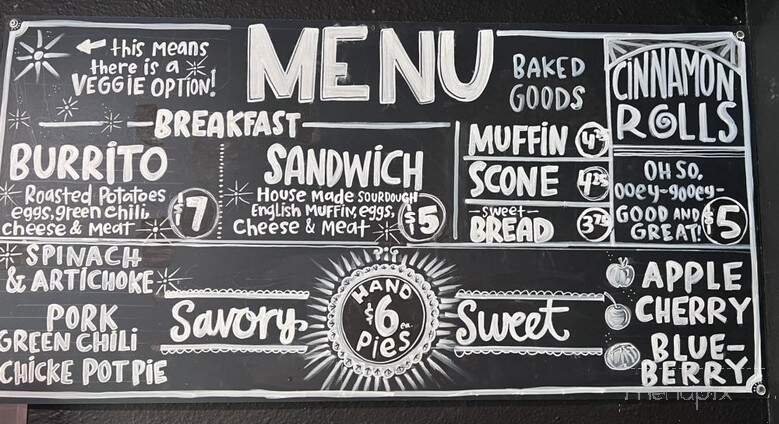 this means
there is a
VEGGIE OPTION!
MENU
BREAKFAST
BURRITO
Roasted Potatoes
eggs, green chili,
cheese & Meat
$7
SANDWICH
House Made SOURDOUGH
English Muffin, eggs,
Cheese & Meat
$5
BAKED
GOODS
MUFFIN
SCONE
4.25
-sweet-
BREAD
3.75
CINNAMON
ROLLS
OH SO,
ooey-gooey-
GOOD AND
GREAT!
$5
SPINACH
& ARTICHOKE
PORK
GREEN CHILI
CHICKE POT PIE
Savory
HAND
$6 ea.
PIES
Sweet
APPLE
CHERRY
BLUE-
BERRY
menupix